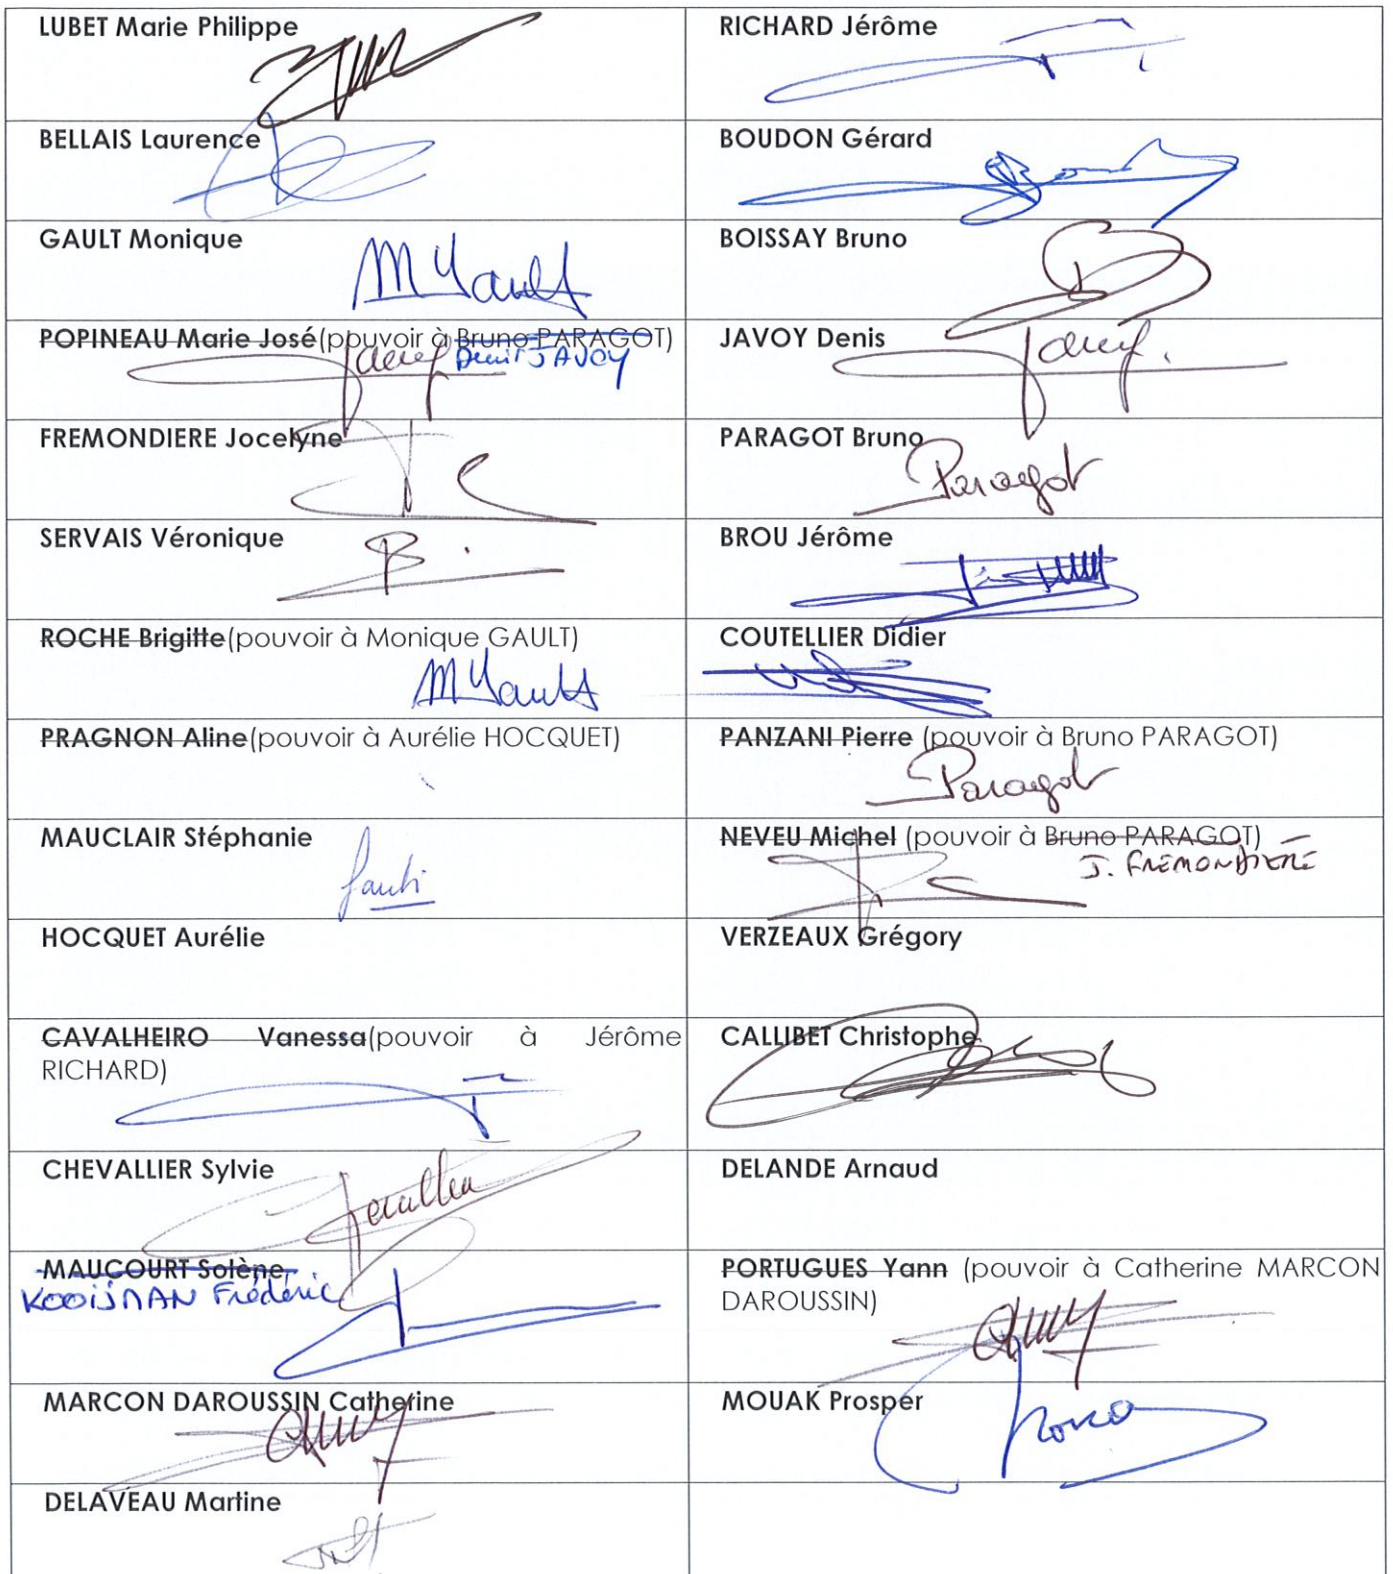 LUBET Marie Philippe
RICHARD Jérôme
BELLAIS Laurence
BOUDON Gérard
GAULT Monique
M Gault
BOISSAY Bruno
POPINEAU Marie José(pouvoir à Bruno PARAGOT)
Denis JAVOY
JAVOY Denis
FREMONDIERE Jocelyne
PARAGOT Bruno
Paragot
SERVAIS Véronique
BROU Jérôme
ROCHE Brigitte(pouvoir à Monique GAULT)
M Gault
COUTELLIER Didier
PRAGNON Aline(pouvoir à Aurélie HOCQUET)
PANZANI Pierre (pouvoir à Bruno PARAGOT)
Paragot
MAUCLAIR Stéphanie
NEVEU Michel (pouvoir à Bruno PARAGOT)
J. FREMONDIERE
HOCQUET Aurélie
VERZEAUX Grégory
CAVALHEIRO Vanessa(pouvoir à Jérôme
RICHARD)
CALLIBET Christophe
CHEVALLIER Sylvie
DELANDE Arnaud
MAUCOURT Solène
KOOIJMAN Frédéric
PORTUGUES Yann (pouvoir à Catherine MARCON
DAROUSSIN)
MARCON DAROUSSIN Catherine
MOUAK Prosper
DELAVEAU Martine